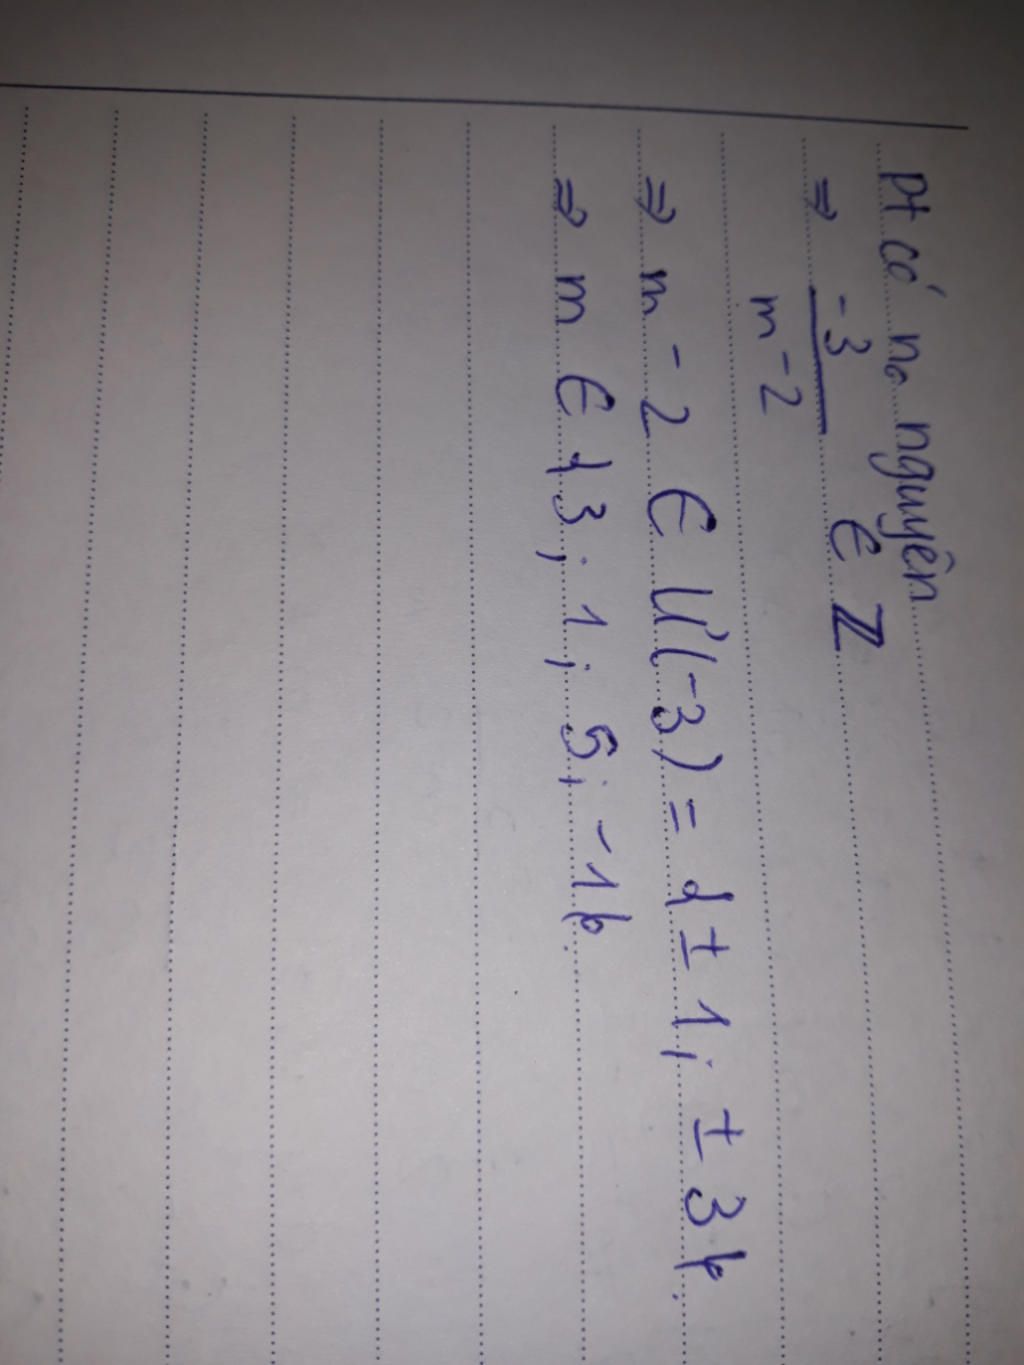 Pt có no nguyên
⇒ -3/(m-2) ∈ Z
⇒ m - 2 ∈ Ư(-3) = {± 1; ± 3}.
⇒ m ∈ {3; 1; 5; -1}.